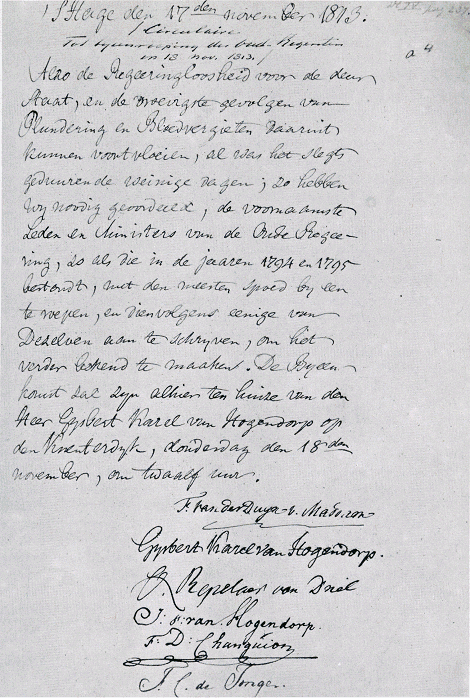 'S Hage den 17den november 1813.
Circulaire
Tot byeenroeping der Oud-Regenten
in 18 nov. 1813.
a 4
Alzo de Regeeringloosheid voor de deur
Staat, en de droevigste gevolgen van
Plundering en Bloedvergieten daaruit
kunnen voortvloeien, al was het slegts
geduurende weinige dagen; zo hebben
wy nodig geoordeeld, de voornaamste
Leden en Ministers van de Oude Regee-
ring, zo als die in de jaaren 1794 en 1795
bestondt, met den meesten spoed by een
te roepen, en dienvolgens eenige van
Dezelven aan te schryven, om het
verder bekend te maaken. De Byeen-
komst zal zyn alhier ten huize van den
Heer Gysbert Karel van Hogendorp op
den Kneuterdyk, donderdag den 18den
november, om twaalf uur.
F. van der Duyn v. Maasdam
Gysbert Karel van Hogendorp.
O. Repelaer van Driel
J: F: van Hogendorp.
F: D: Changuion
F. C. de Jonge.